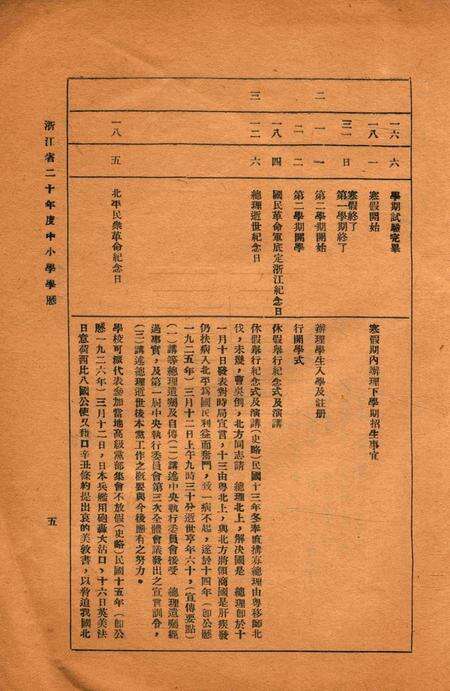 一六 六 學期試驗完畢
一八 一 寒假開始 寒假期內辦理下學期招生事宜
三一 日 寒假終了
第一學期終了
二 一 一 第二學期開始 辦理學生入學及註冊
二 二 第二學期開學 行開學式
一八 四 國民革命軍底定浙江紀念日 休假舉行紀念式及演講
三 一二 六 總理逝世紀念日 休假舉行紀念式及演講(史略)民國十三年冬奉直搆釁總理由粤移師北
伐,未幾,曹吳倒,北方同志請 總理北上,解決國是 總理卽於十
一月十日發表對時局宣言,十三由粤北上,與北方將領商國是肝疾發
仍扶病入北平爲國民利益而奮鬥,致一病不起,遂於十四年(卽公曆
一九二五年)三月十二日上午九時三十分逝世享年六十,(宣傳要點)
(一)講等總理遺囑及自傳(二)講述中央執行委員會接受 總理遺囑經
過事實,及第一屆中央執行委員會第三次全體會議發出之宣言訓令,
(三)講述總理逝世後本黨工作之概要與今後應有之努力。
一八 五 北平民衆革命紀念日 學校可派代表參加當地高級黨部集會不放假(史略)民國十五年(卽公
曆一九二六年)三月十二日,日本兵艦用砲轟大沽口,十六日英美法
日意荷西比八國公使又藉口辛丑條約提出哀的美敦書,以脅迫我國北
浙江省二十年度中小學學曆
五